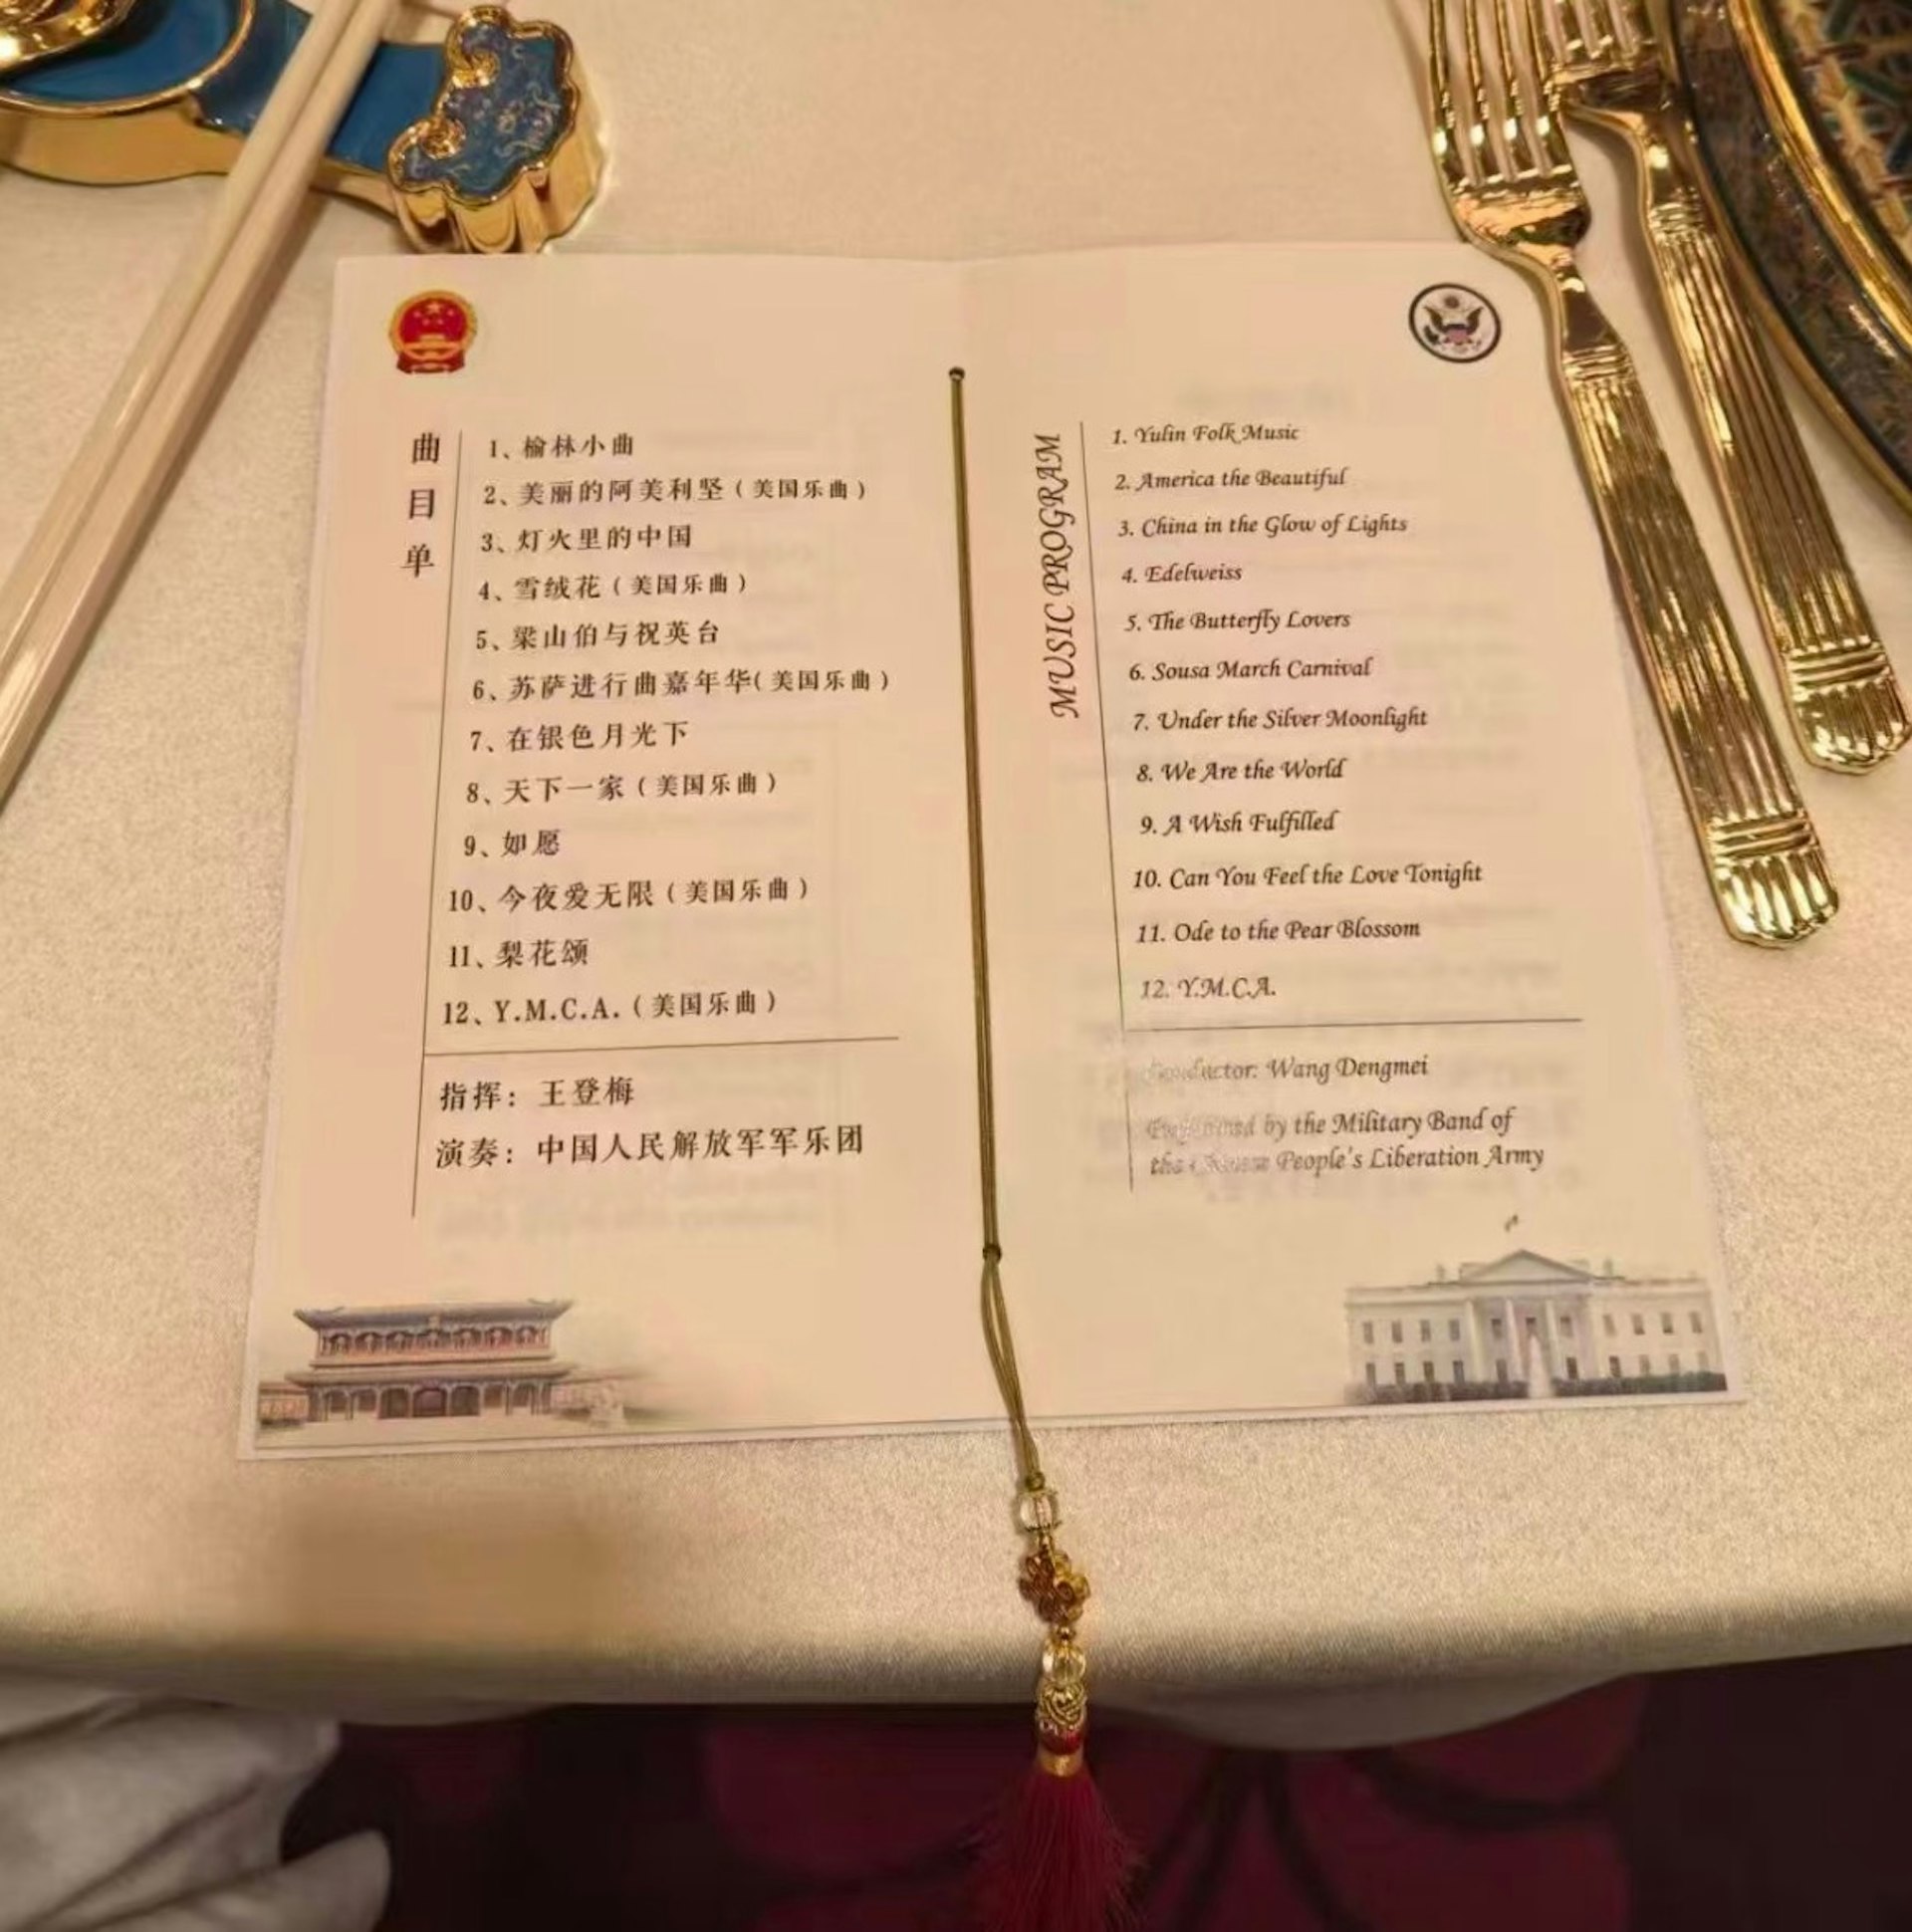 曲目单
1、榆林小曲
2、美丽的阿美利坚（美国乐曲）
3、灯火里的中国
4、雪绒花（美国乐曲）
5、梁山伯与祝英台
6、苏萨进行曲嘉年华（美国乐曲）
7、在银色月光下
8、天下一家（美国乐曲）
9、如愿
10、今夜爱无限（美国乐曲）
11、梨花颂
12、Y.M.C.A.（美国乐曲）
指挥：王登梅
演奏：中国人民解放军军乐团
MUSIC PROGRAM
1. Yulin Folk Music
2. America the Beautiful
3. China in the Glow of Lights
4. Edelweiss
5. The Butterfly Lovers
6. Sousa March Carnival
7. Under the Silver Moonlight
8. We Are the World
9. A Wish Fulfilled
10. Can You Feel the Love Tonight
11. Ode to the Pear Blossom
12. Y.M.C.A.
Conductor: Wang Dengmei
Performed by the Military Band of
the Chinese People's Liberation Army